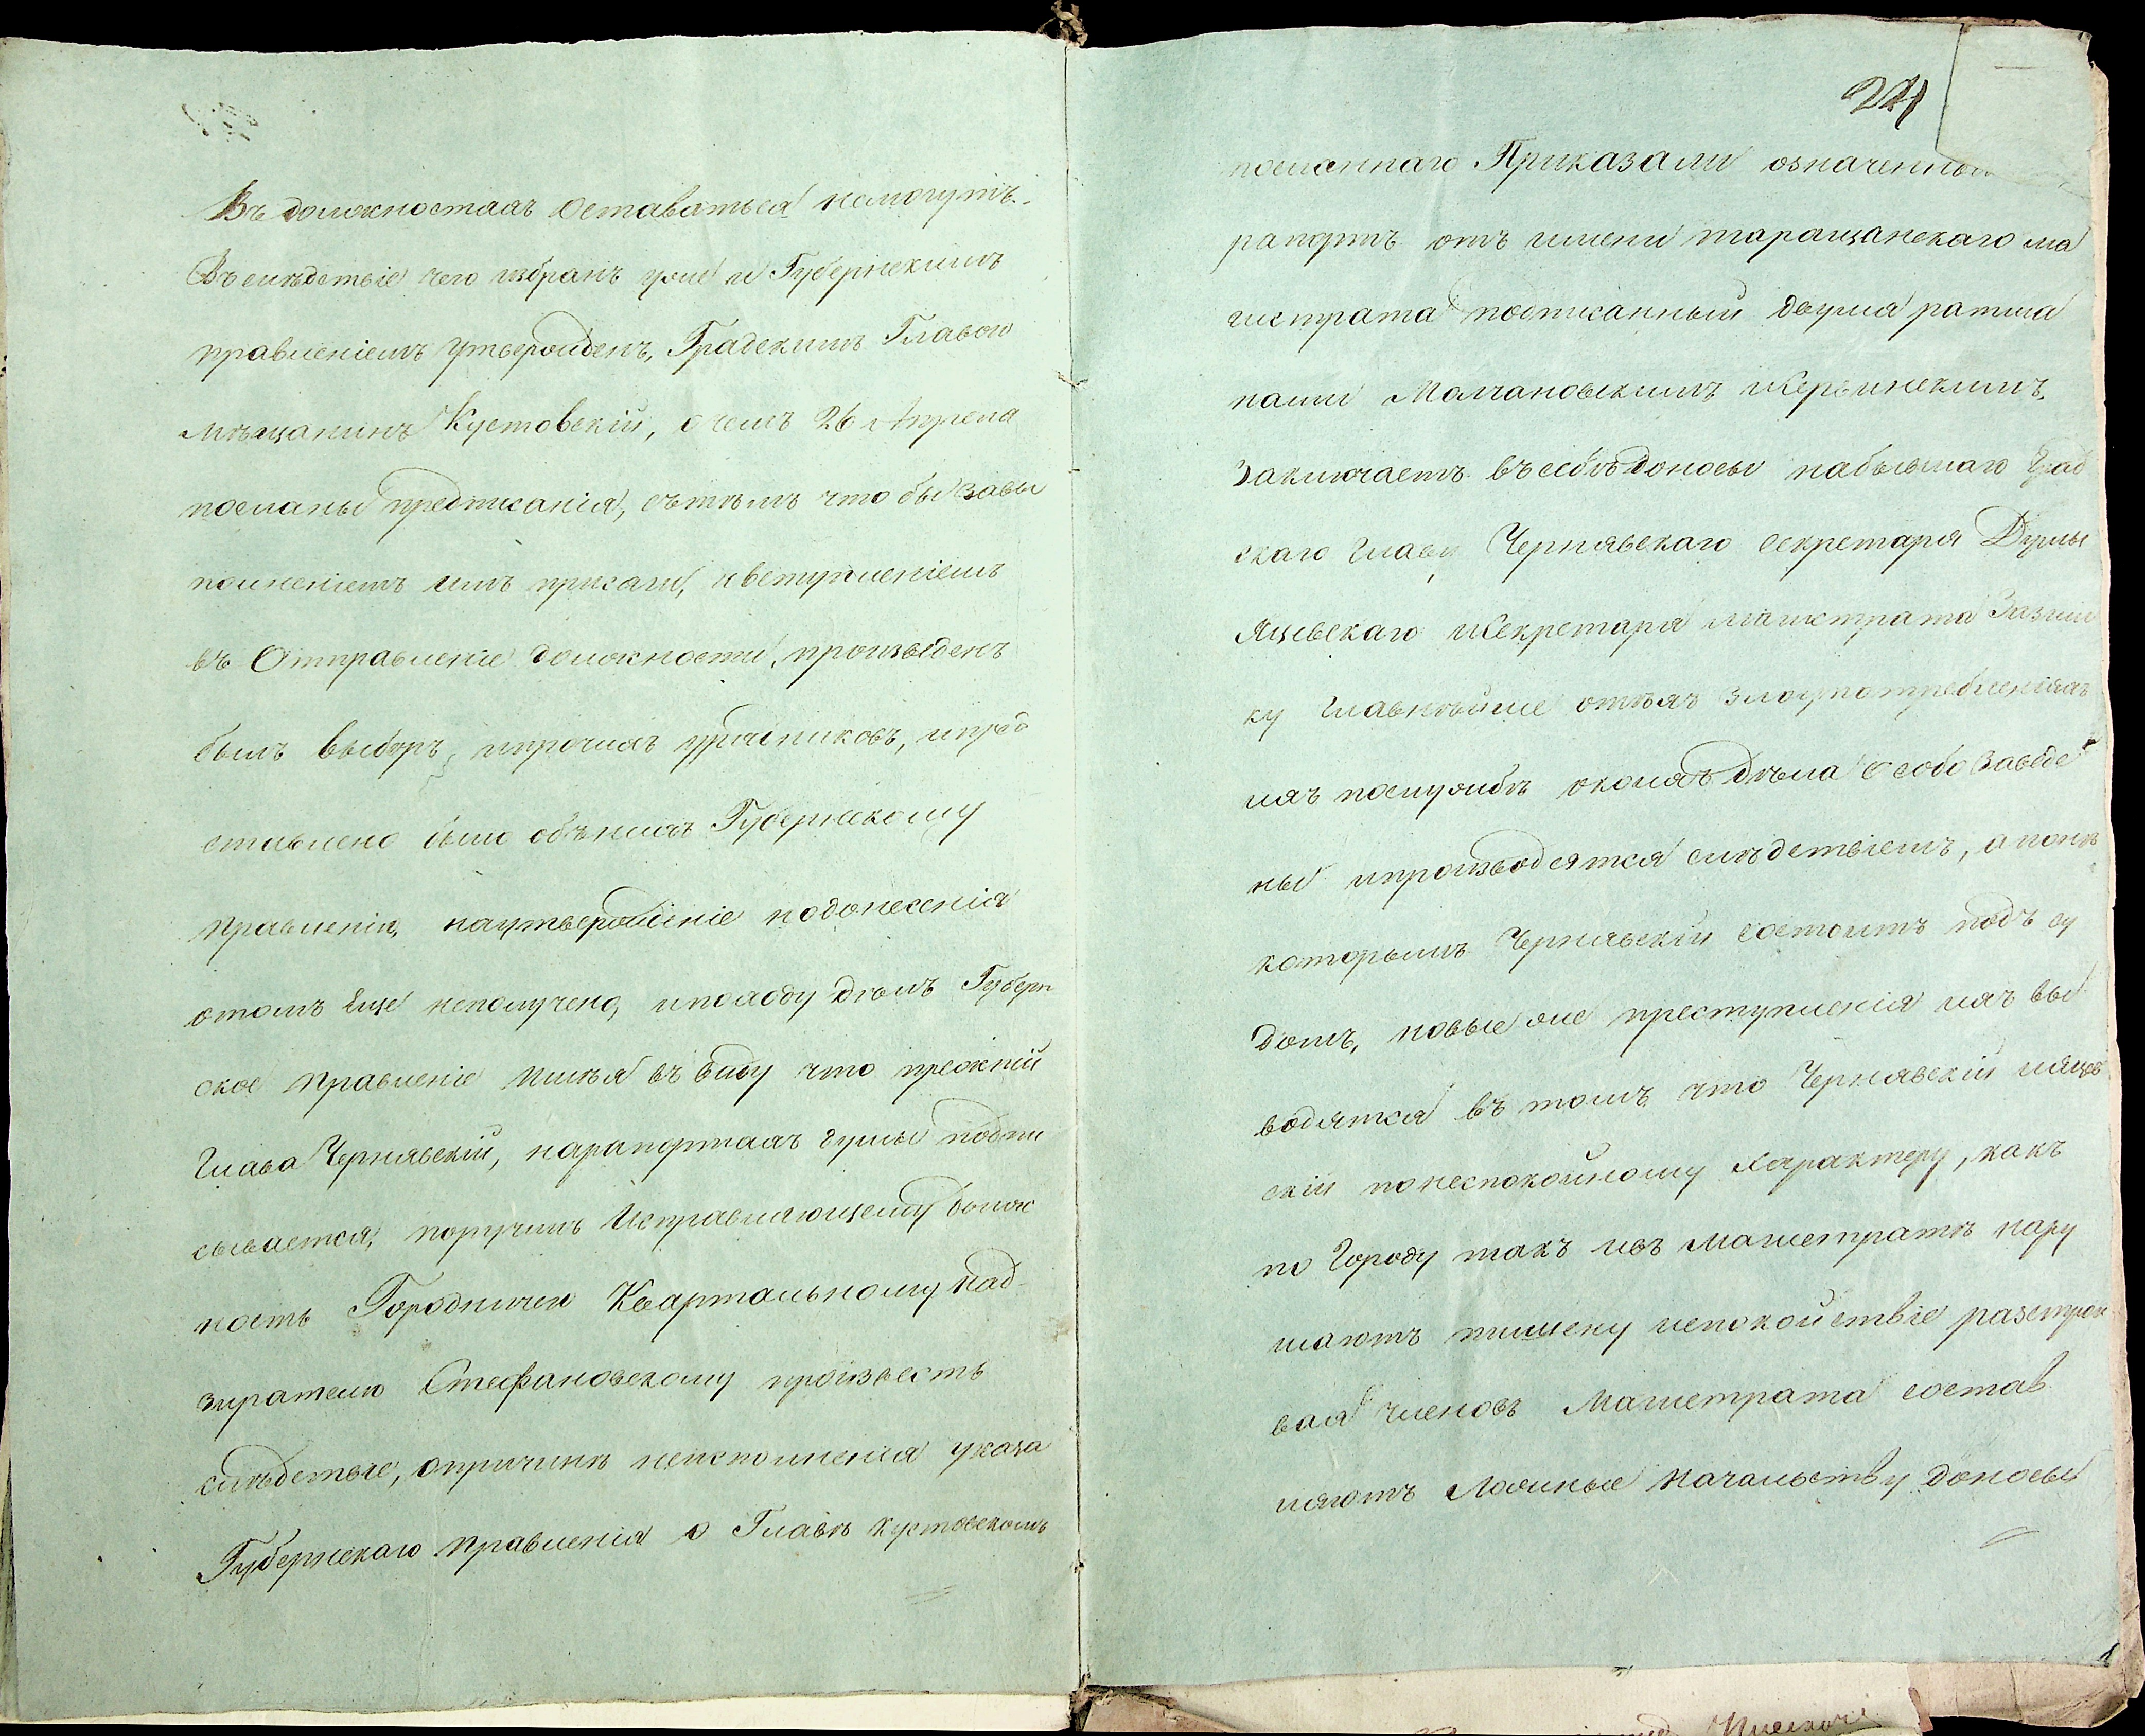 Въ должностяхъ оставаться немогутъ.
Въ слѣдствіе чего избранъ уже и Губернскимъ
правленіемъ утвержденъ, Градскимъ Главою
мѣщанинъ Кустовскій, о чемъ 26 Апреля
посланы предписанія, съ тѣмъ что бы завы
полненіемъ имъ присяги, и вступленіемъ
въ Отправленіе должности, произведенъ
былъ выборъ, и прочихъ чиновниковъ, и пред
ставлено было объ нихъ Губернскому
правленію, на утвержденіе но донесенія
о томъ еще неполучено, и по ходу дѣлъ Губерн
ское правленіе имѣя въ виду что прежній
Глава Чернявскій, на рапортахъ думы подпи
сывается, поручилъ Исправляющему долж
ность Городничего Квартальному над-
зирателю Стефановскому произвесть
слѣдствіе, о причинѣ неисполненія указа
Губернскаго Правленія о Главѣ Кустовскомъ
24
посланнаго Приказали означенный
рапортъ отъ имени таращанскаго ма
гистрата подписанный двумя ратма
нами Молчановскимъ и
Заключаетъ въ себѣ доносы на бывшаго Град
скаго Главу Чернявскаго секретаря Думы
Яцевскаго и Секретаря магистрата
ку главнѣйше о тѣхъ злоупотребленіяхъ
ихъ по службѣ о коихъ дѣла особо заведе
ны и производятся слѣдствіемъ, а по нѣ
которымъ Чернявскій состоитъ подъ су
домъ, новые же преступленія ихъ вы
водятся въ томъ что Чернявскій и Яцев
скій по неспокойному характеру, какъ
по Городу такъ и въ магистратѣ нару
шаютъ тишину и спокойствіе разстрои
вая членовъ Магистрата состав
ляютъ ложные начальству доносы